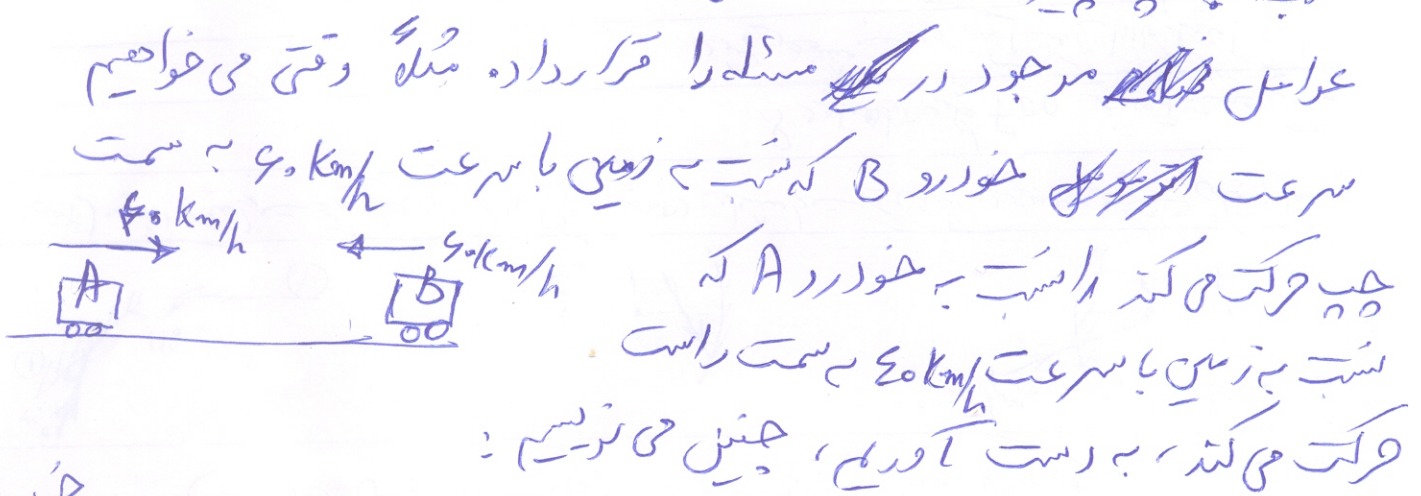 عوامل موجود در مسئله را قرار داده. مثلاً وقتی می خواهیم
سرعت خودرو B که نسبت به زمین با سرعت ۶۰ km/h به سمت
۴۰ km/h
۶۰ km/h
A
B
چپ حرکت می کند را نسبت به خودرو A که
نسبت به زمین با سرعت ۴۰ km/h به سمت راست
حرکت می کند، به دست آوریم، چنین می نویسیم :